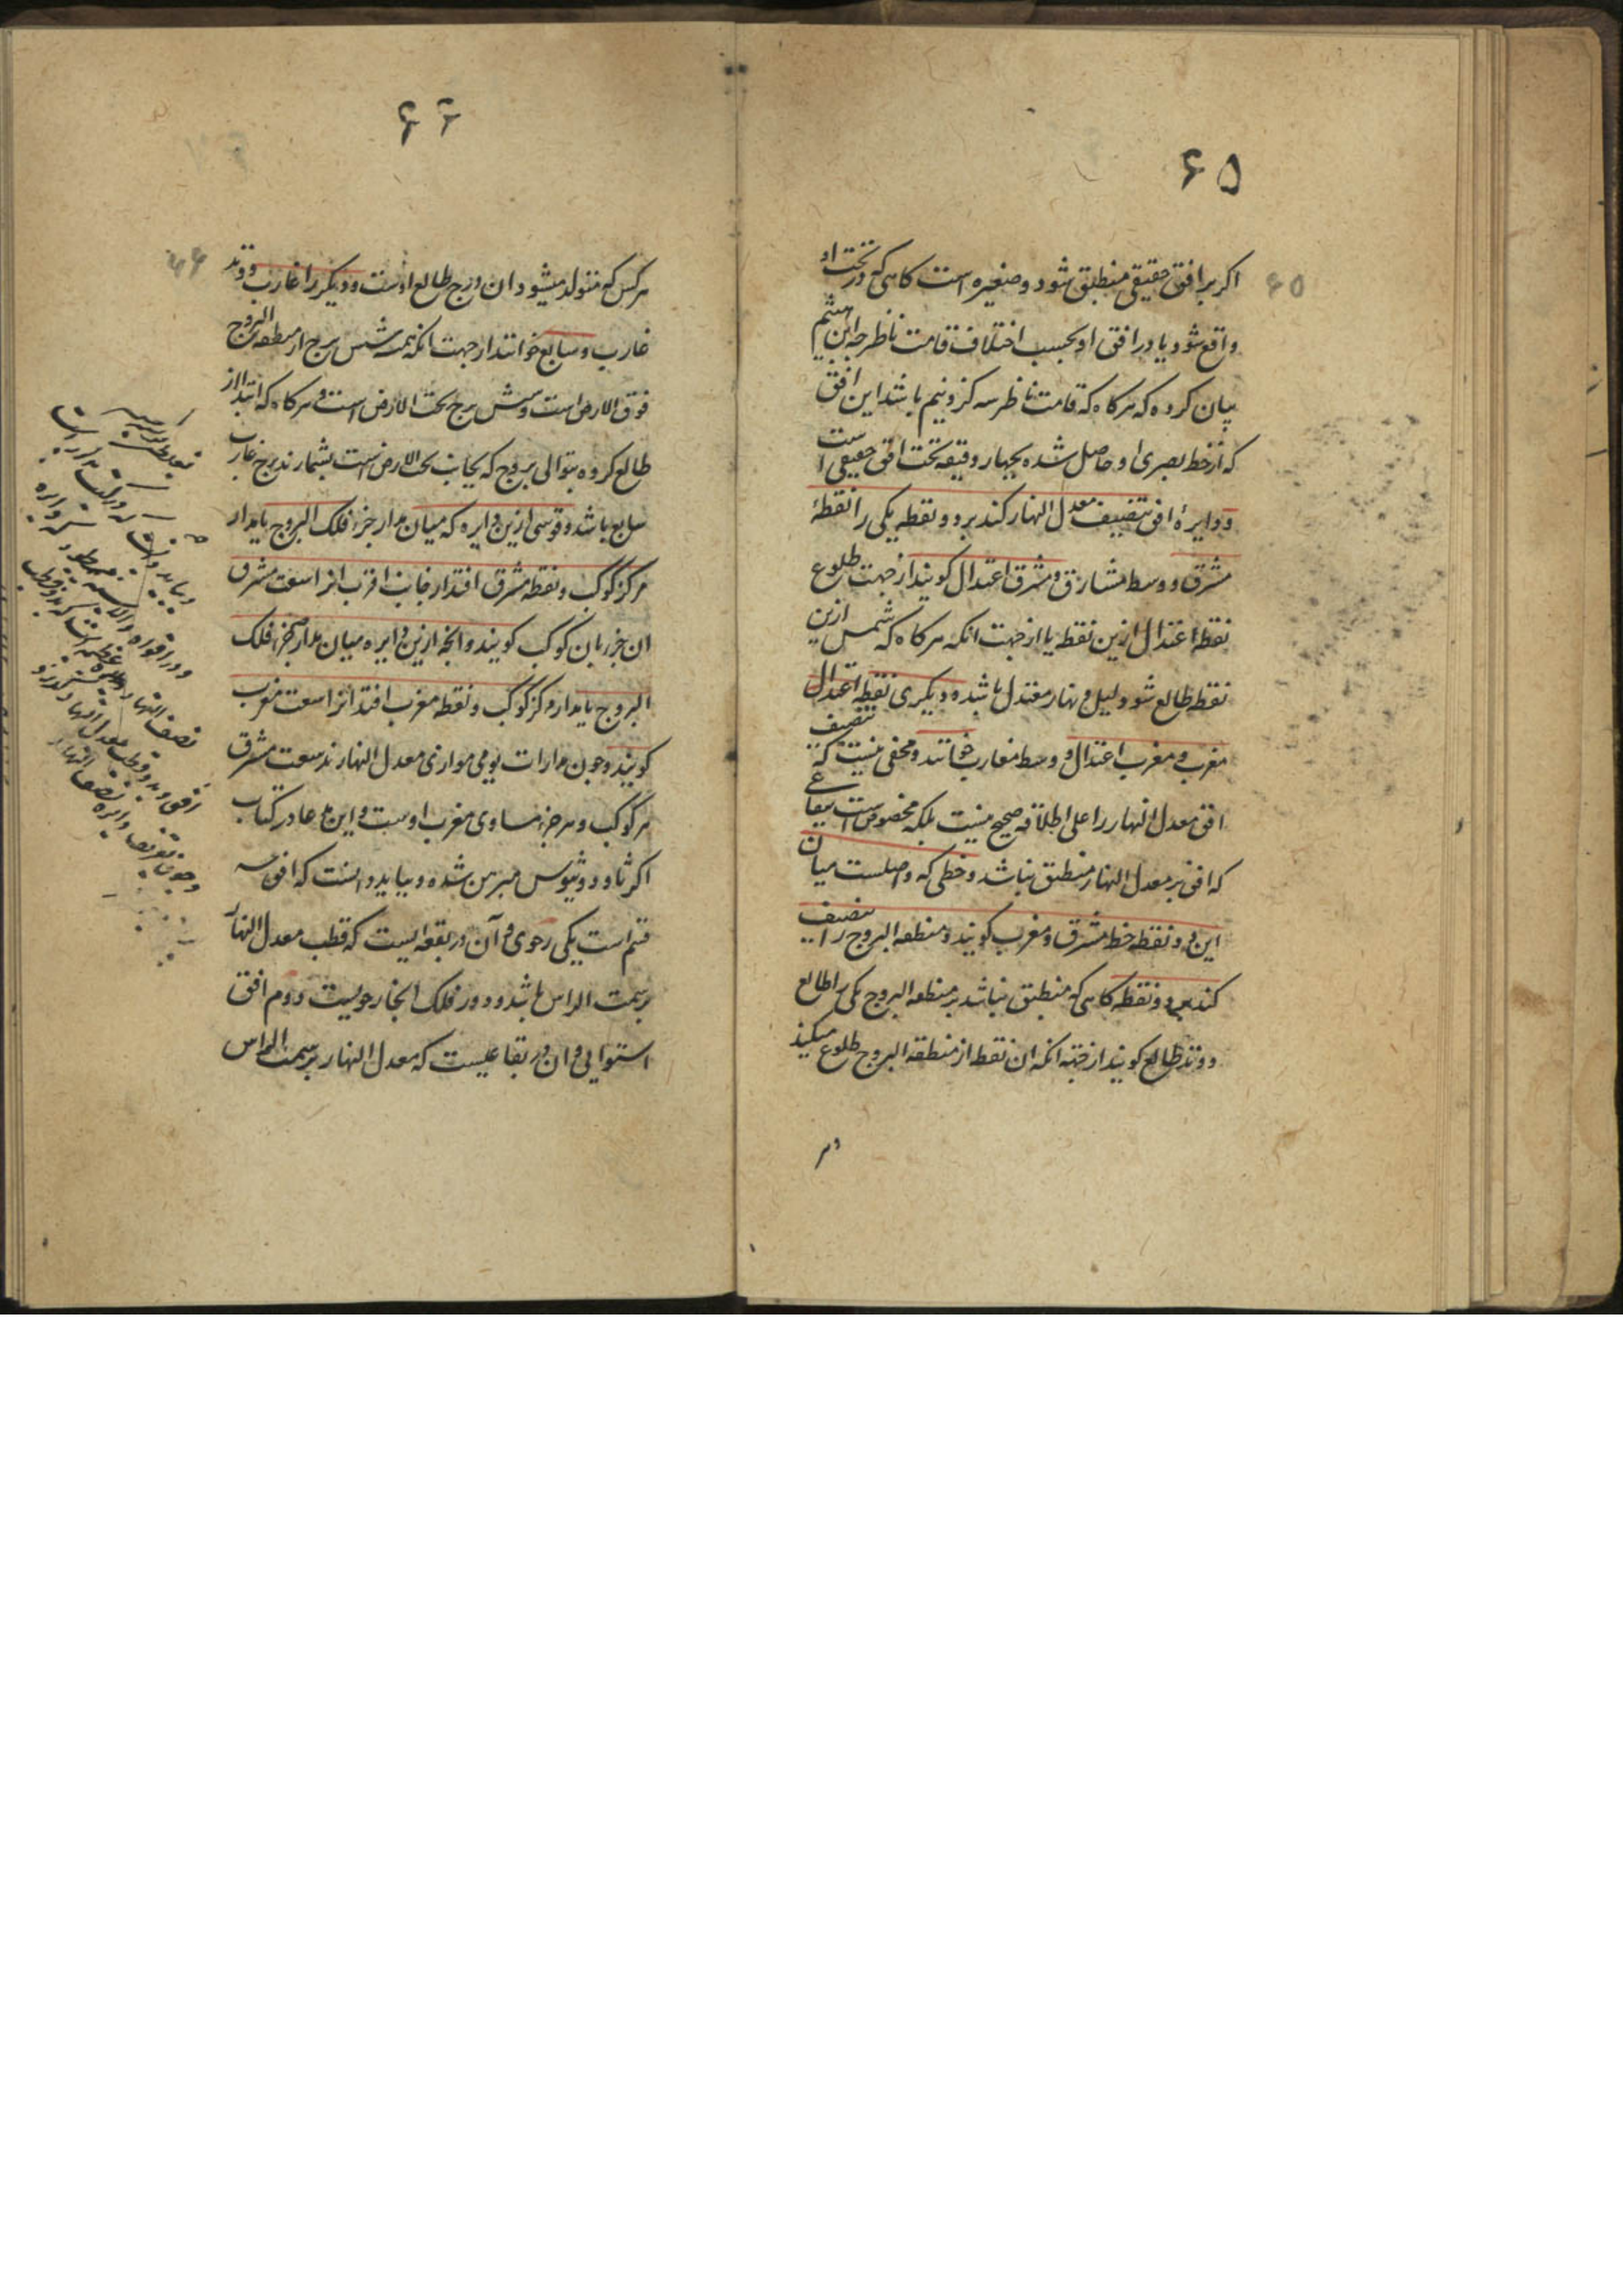 ۶۵
۶۵
اکر بر افق حقیقی منطبق شود و صغیره است کاهی که در تحت او
واقع شود یا در افق او بحسب اختلاف قامت ناظر چه ابن هشیم
بیان کرده که هرکاه که قامت ناظر سه کز و نیم باشد این افق
که از خط بصری او حاصل شده بچهار دقیقه تحت افق حقیقی است
و دایرهٔ افق تنصیف معدل النهار کند بر دو نقطه یکی را نقطهٔ
مشرق و وسط مشارق و مشرق اعتدال کویند از جهت طلوع
نقطه اعتدال ازین نقطه یا از جهت انکه هرکاه که شمس ازین
نقطه طالع شود لیل و نهار معتدل باشد و دیکری نقطه اعتدال
مغرب و مغرب اعتدال و وسط مغارب خوانند و مخفی نیست که تنصیف
افق معدل النهار را علی اطلاقه صحیح نیست بلکه مخصوص است ببقاعی
که افق بر معدل النهار منطبق نباشد و خطی که واصلست میان
این دو نقطه خط مشرق و مغرب کویند و منطقه البروج را تنصیف
کند بر دو نقطه کاهی که منطبق نباشد بر منطقه البروج یکی را طالع
و وتد طالع کویند از جهته انکه ان نقطه از منطقه البروج طلوع میکند
و هر
۶۶
۶۶
هرکس که متولد میشود ان درج طالع اوست و دیکر را غارب و وتد
غارب و سابع خوانند از جهت انکه همیشه شش برج از منطقه البروج
فوق الارض است و شش برج تحت الارض است و هرکاه که ابتدا از
طالع کرده بتوالی بروج که بجانب تحت الارض است بشمارند برج غارب
سابع باشد و قوسی ازین دایره که میان مدار جزء فلک البروج یا مدار
مرکز کوکب و نقطه مشرق افتد از جانب اقرب انرا سعت مشرق
ان جزء یا ان کوکب کویند و انچه ازین دایره میان مدار جزء فلک
البروج یا مدار مرکز کوکب و نقطه مغرب افتد انرا سعت مغرب
کویند و چون مدارات یومی موازی معدل النهارند سعت مشرق
هر کوکب و هر جزء مساوی مغرب اوست و این مدعا در کتاب
اکر ثاودوثیوس مبرهن شده و بباید دانست که افق سه
قسم است یکی رحوی و آن در بقعه ایست که قطب معدل النهار
بر سمت الراس باشد و دور فلک انجا رحویست دوم افق
استوایی و ان در بقاعیست که معدل النهار بر سمت الراس